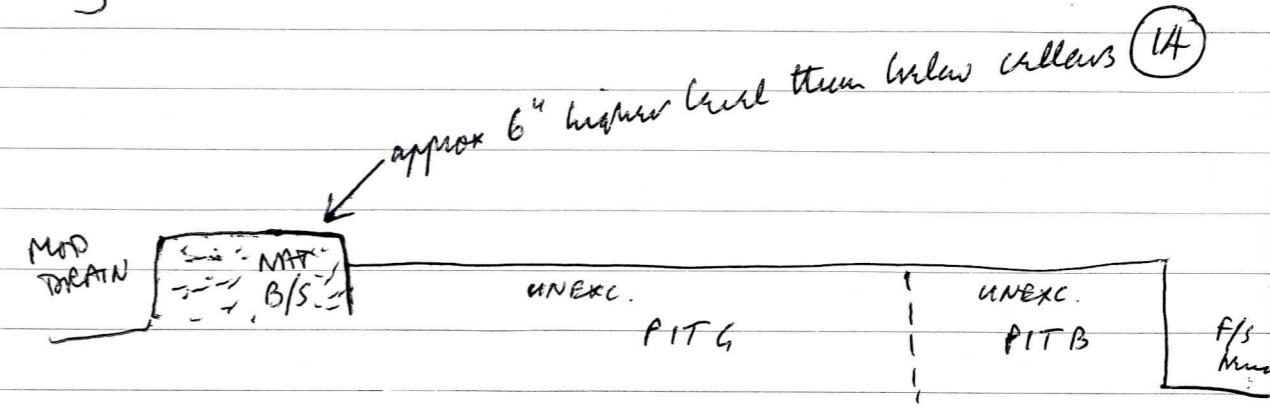 14
approx 6" higher level than below cellars
MOD
DRAIN
NAT
B/S
UNEXC.
PIT G
UNEXC.
PIT B
F/S